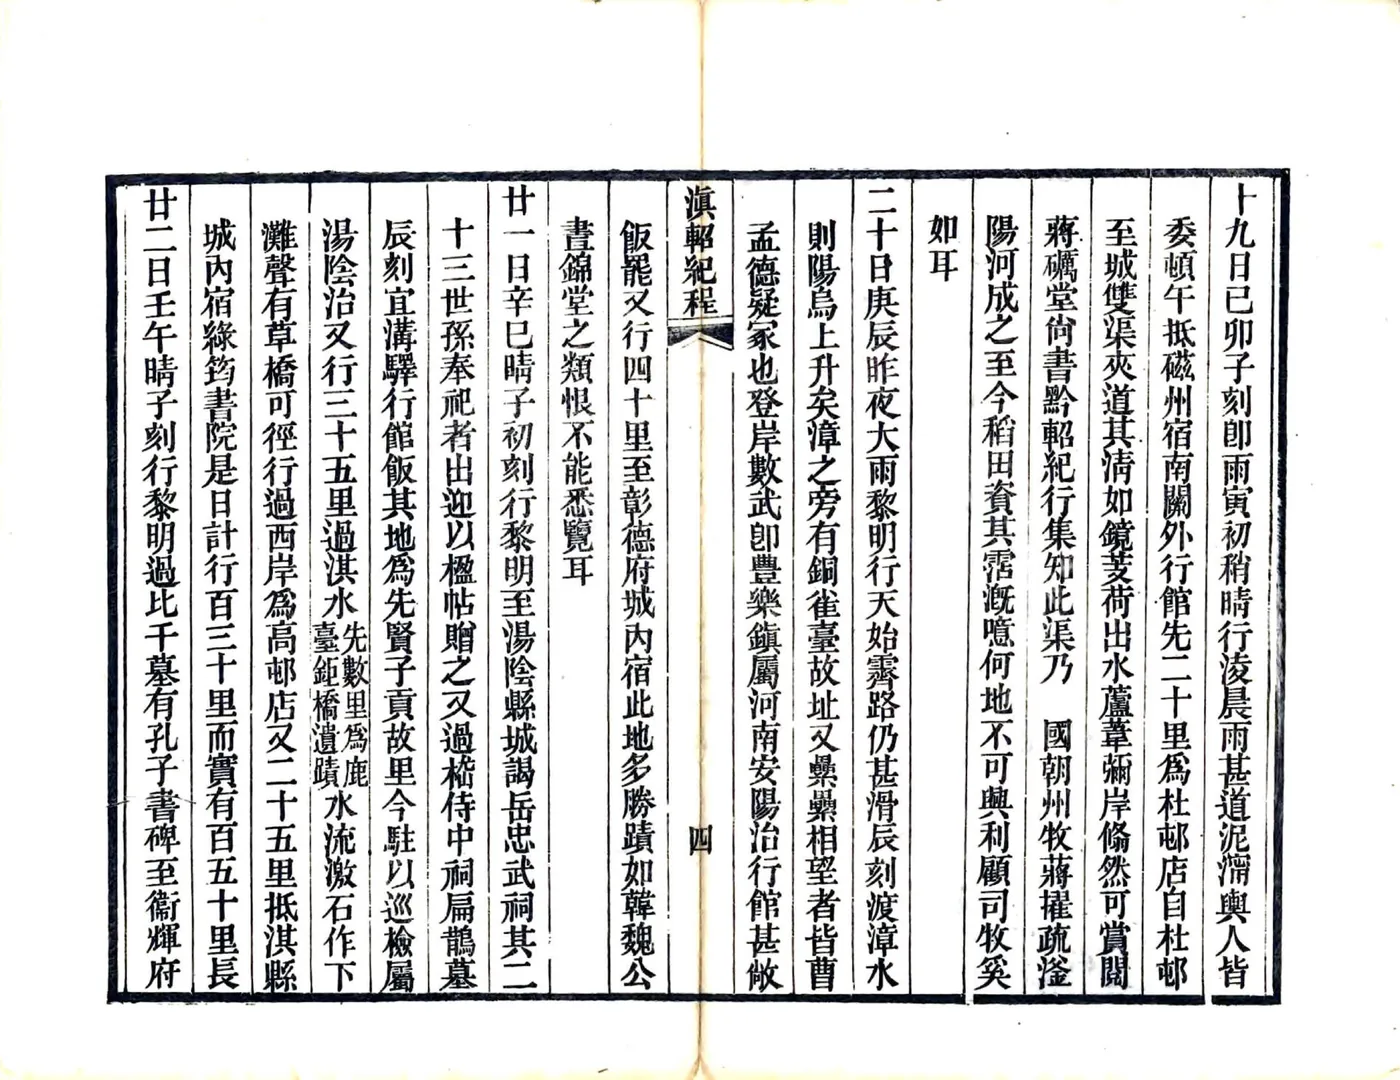 十九日己卯子刻卽雨寅初稍晴行淩晨雨甚道泥濘輿人皆
委頓午抵磁州宿南關外行館先二十里爲杜邨店自杜邨
至城雙渠夾道其淸如鏡芰荷出水蘆葦彌岸翛然可賞閱
蔣礪堂尙書黔軺紀行集知此渠乃　國朝州牧蔣擢疏滏
陽河成之至今稻田資其霑漑噫何地不可興利顧司牧奚
如耳
二十日庚辰昨夜大雨黎明行天始霽路仍甚滑辰刻渡漳水
則陽烏上升矣漳之旁有銅雀臺故址又纍纍相望者皆曹
孟德疑冢也登岸數武卽豐樂鎭屬河南安陽治行館甚敞
滇軺紀程
四
飯罷又行四十里至彰德府城內宿此地多勝蹟如韓魏公
晝錦堂之類恨不能悉覽耳
廿一日辛巳晴子初刻行黎明至湯陰縣城謁岳忠武祠其二
十三世孫奉祀者出迎以楹帖贈之又過嵇侍中祠扁鵲墓
辰刻宜溝驛行館飯其地爲先賢子貢故里今駐以巡檢屬
湯陰治又行三十五里過淇水先數里爲鹿臺鉅橋遺蹟水流激石作下
灘聲有草橋可徑行過西岸爲高邨店又二十五里抵淇縣
城內宿綠筠書院是日計行百三十里而實有百五十里長
廿二日壬午晴子刻行黎明過比干墓有孔子書碑至衞輝府